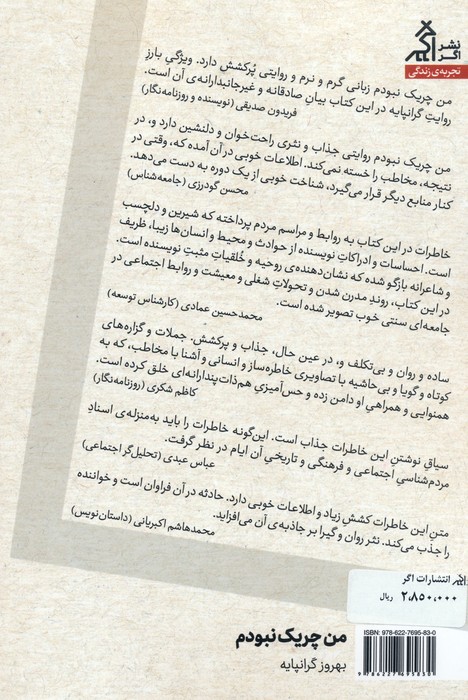 نشر
اگر
تجربه‌ی زندگی
من چریک نبودم زبانی گرم و نرم و روایتی پُرکشش دارد. ویژگیِ بارزِ
روایتِ گرانپایه در این کتاب بیانِ صادقانه و غیرجانبدارانه‌ی آن است.
فریدون صدیقی (نویسنده و روزنامه‌نگار)
من چریک نبودم روایتی جذاب و نثری راحت‌خوان و دلنشین دارد و، در
نتیجه، مخاطب را خسته نمی‌کند. اطلاعات خوبی در آن آمده که، وقتی در
کنار منابع دیگر قرار می‌گیرد، شناخت خوبی از یک دوره به دست می‌دهد.
محسن گودرزی (جامعه‌شناس)
خاطرات در این کتاب به روابط و مراسم مردم پرداخته که شیرین و دلچسب
است. احساسات و ادراکاتِ نویسنده از حوادث و محیط و انسان‌ها زیبا، ظریف
و شاعرانه بازگو شده که نشان‌دهنده‌ی روحیه و خُلقیاتِ مثبتِ نویسنده است.
در این کتاب، روندِ مدرن شدن و تحولاتِ شغلی و معیشت و روابط اجتماعی در
جامعه‌ای سنتی خوب تصویر شده است.
محمدحسین عمادی (کارشناس توسعه)
ساده و روان و بی‌تکلف و، در عین حال، جذاب و پرکشش. جملات و گزاره‌های
کوتاه و گویا و بی‌حاشیه با تصاویری خاطره‌ساز و انسانی و آشنا با مخاطب، که به
همنوایی و همراهیِ او دامن زده و حس‌آمیزیِ هم‌ذات‌پندارانه‌ای خلق کرده است.
کاظم شکری (روزنامه‌نگار)
سیاقِ نوشتنِ این خاطرات جذاب است. این‌گونه خاطرات را باید به‌منزله‌ی اسنادِ
مردم‌شناسیِ اجتماعی و فرهنگی و تاریخیِ آن ایام در نظر گرفت.
عباس عبدی (تحلیل‌گر اجتماعی)
متنِ این خاطرات کششِ زیاد و اطلاعات خوبی دارد. حادثه در آن فراوان است و خواننده
را جذب می‌کند. نثر روان و گیرا بر جاذبه‌ی آن می‌افزاید.
محمدهاشم اکبریانی (داستان‌نویس)
انتشارات اگر
۲،۸۵۰،۰۰۰ ریال
ISBN: 978-622-7695-83-0
9 786227 695830
من چریک نبودم
بهروز گرانپایه